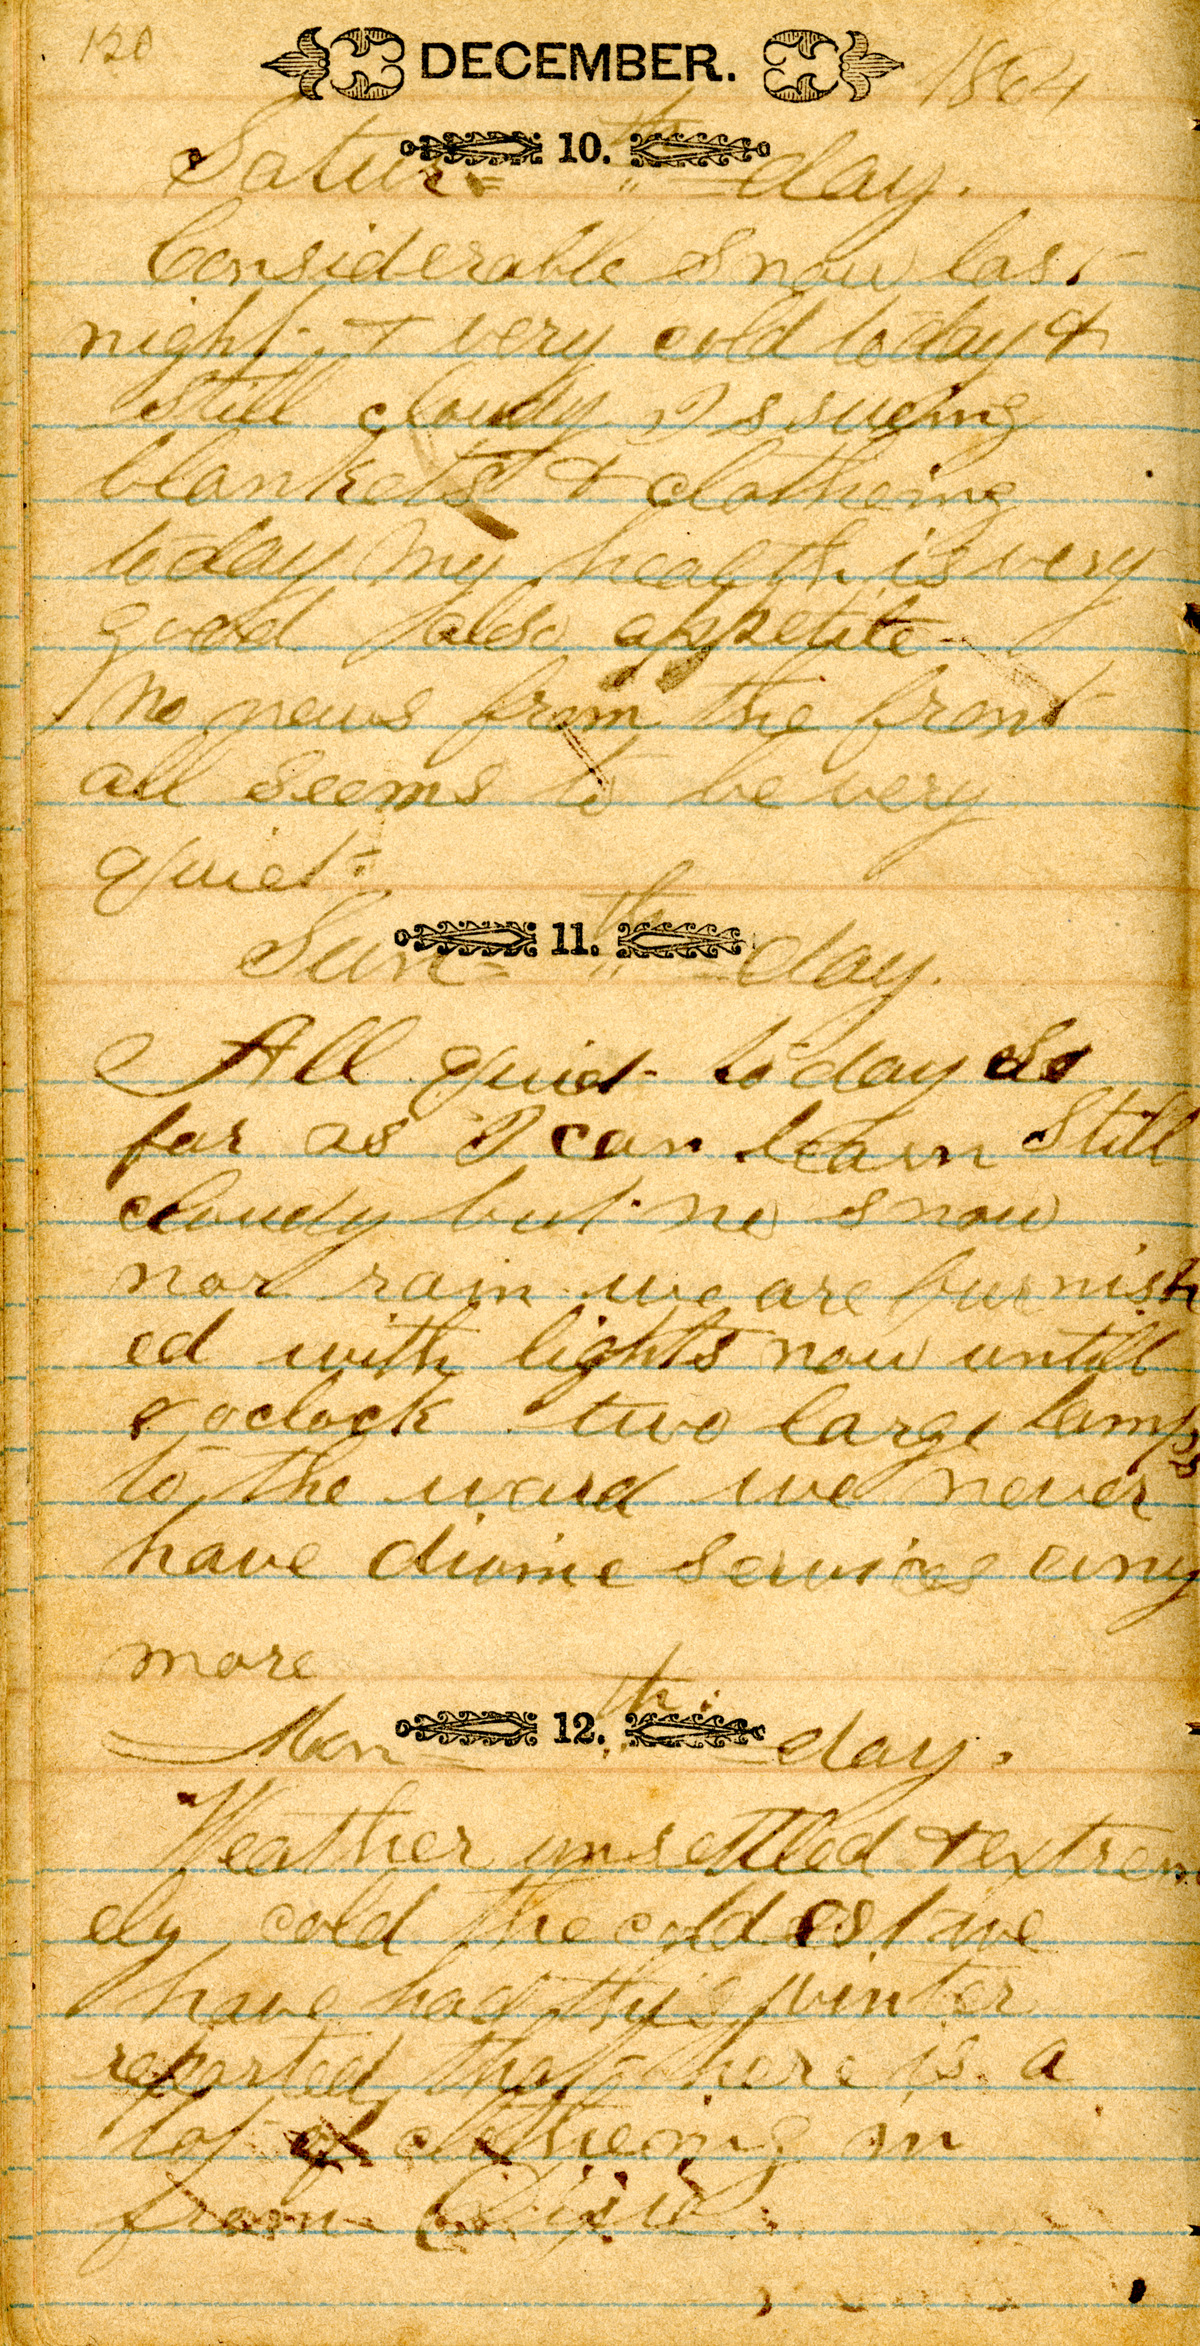 120 DECEMBER. 1864
Satur= 10.th =day.
Considerable Snow last
night & very cold today &
still cloudy Issueing
blankets & clotheing
today My health is very
good also appetite
No news from the front
all seems to be very
quiet.
Sun= 11.th =day.
All quiet today as
far as I can learn Still
cloudy but no snow
nor rain we are furnish
ed with lights now untill
8 oclock two large lamps
to the ward we never
have divine services any
more
Mon= 12.th =day.
Weather unsettled & extrem
ely cold the coldest we
have had this winter
reported that there is a
lot of clotheing in
from